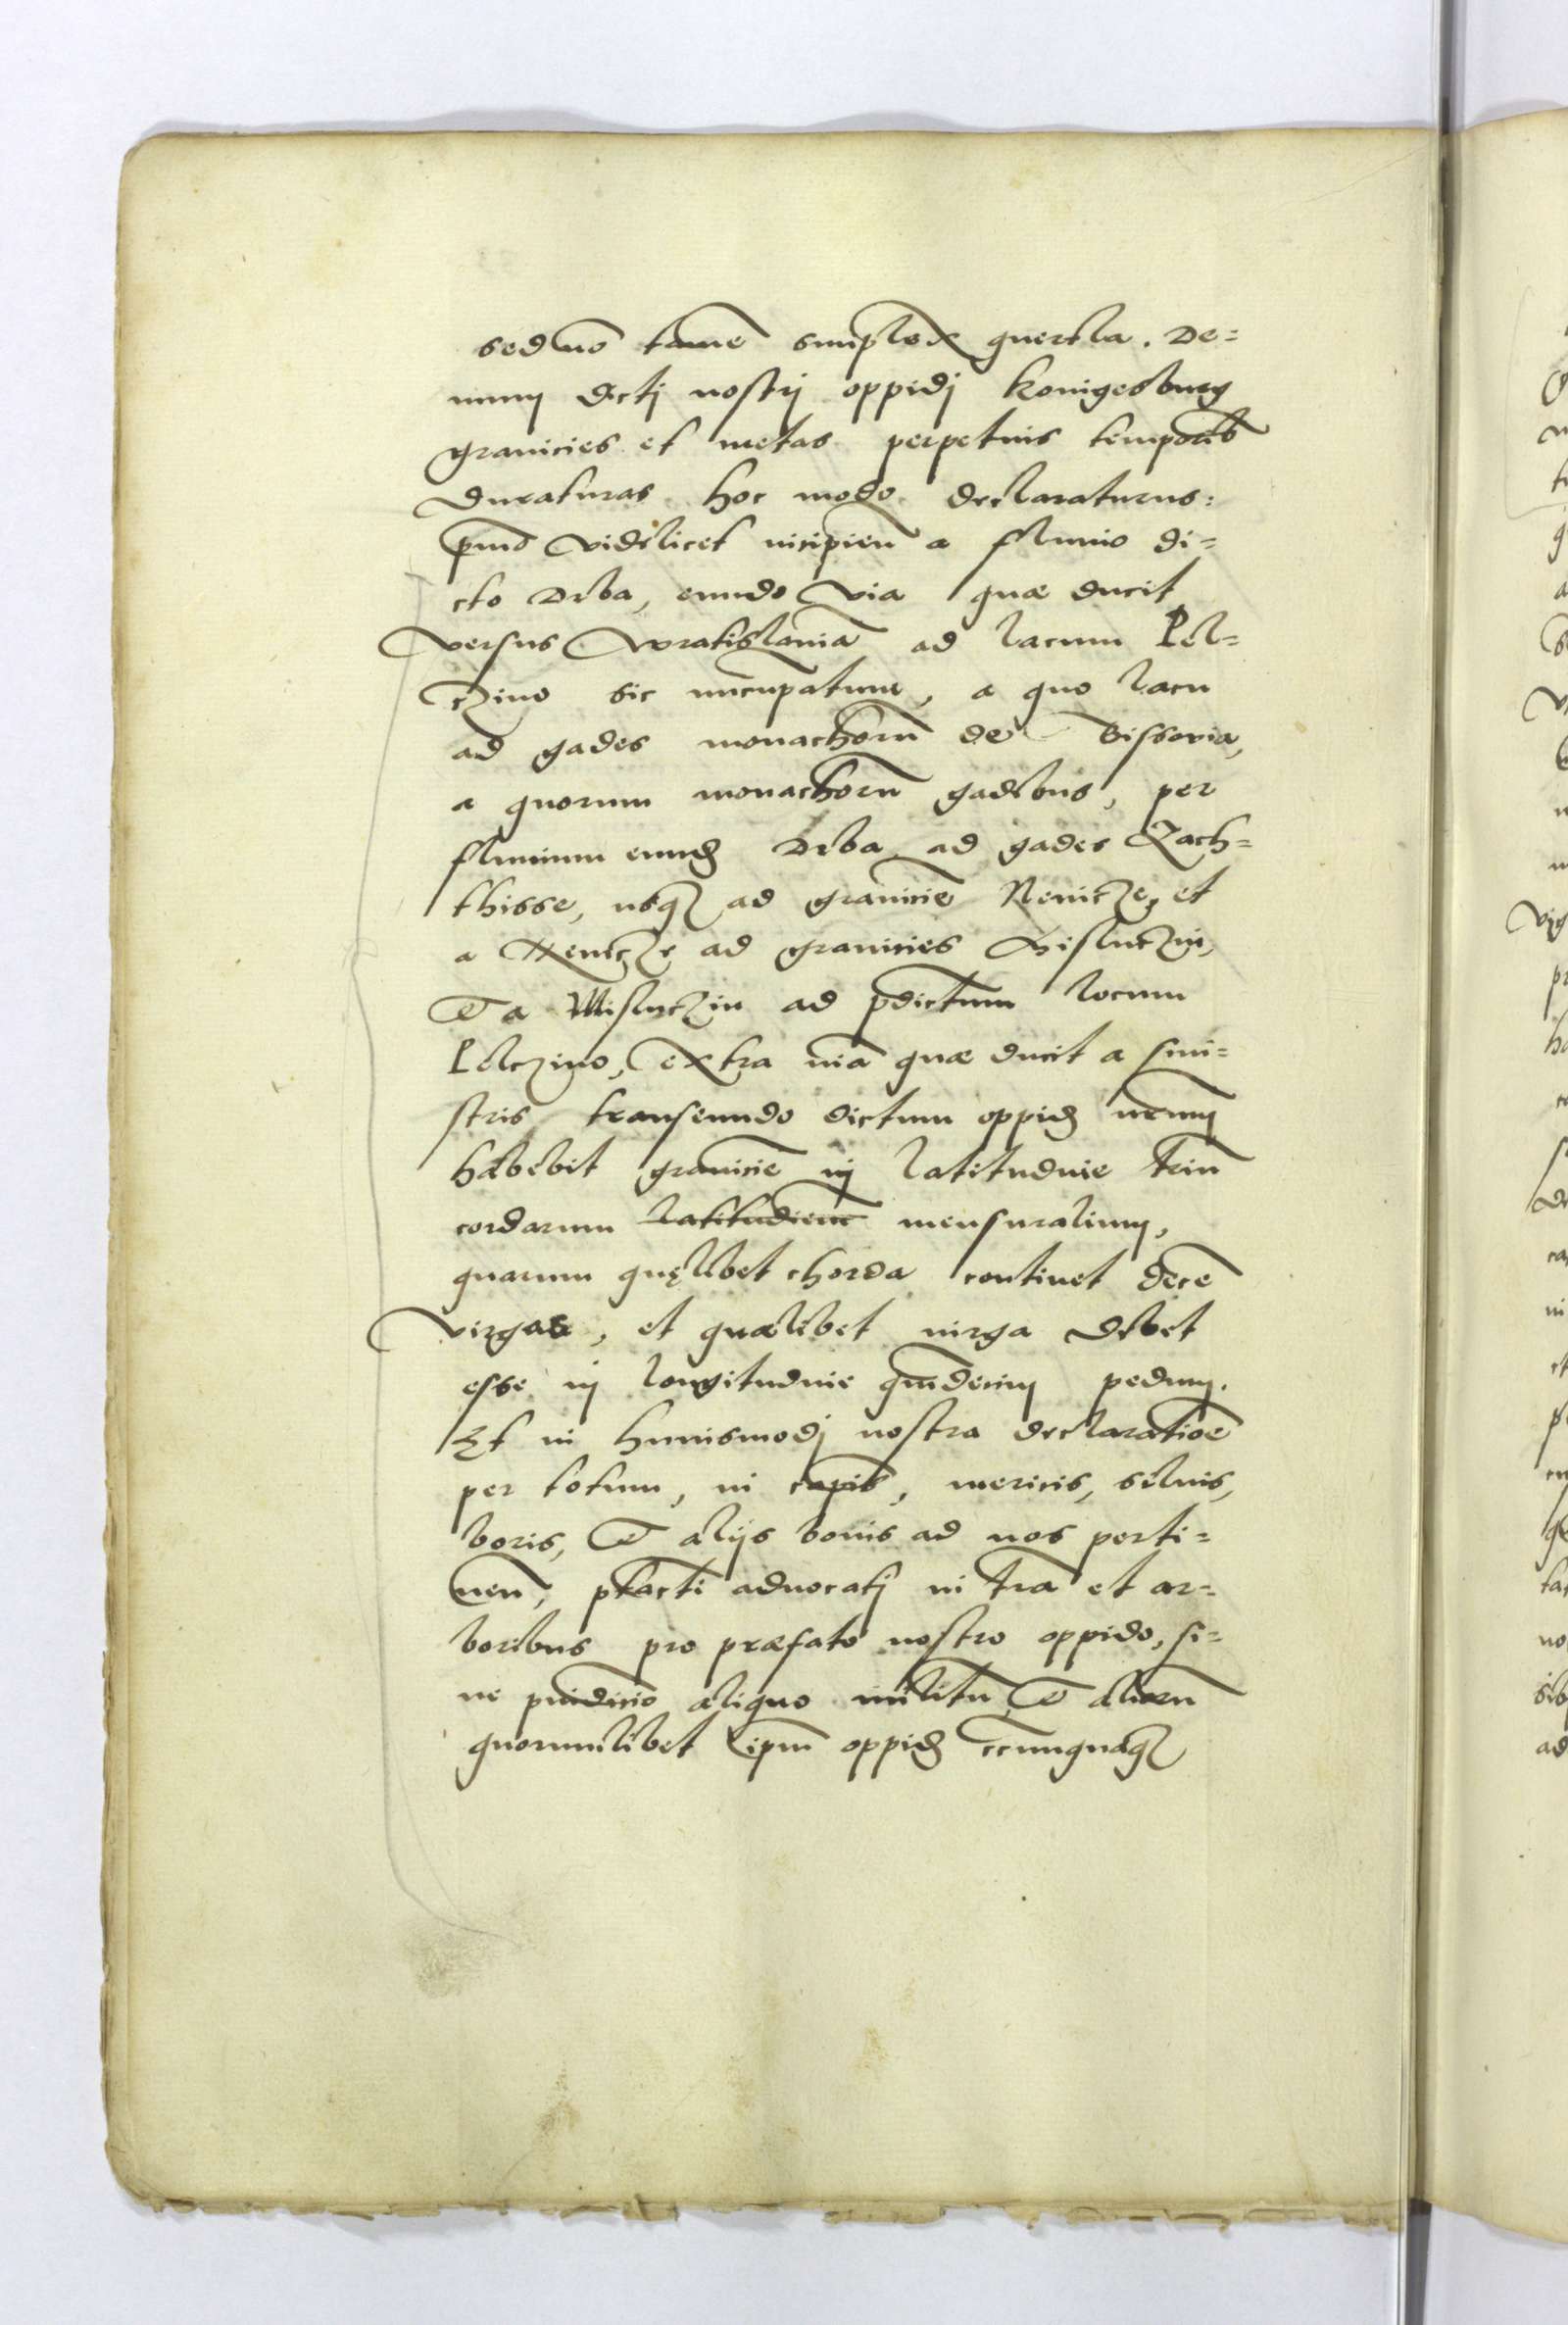 sed nō tamē simplex querela. De=
mum dicti nostrj oppidj Konigesburg
granicies et metas perpetuis temporib
duraturas hoc modo declaraturus:
pmo videlicet incipien̄ a fluuio di=
cto Drba, eundo via quæ ducit
versus Wratislauiā ad lacum Pel=
czino sic nuncupatum, a quo lacu
ad gades monachorū de Bissovia,
a quorum monachorū gadibus, per
fluuium eund Drba ad gades Zach=
thisse, usq ad graniciē Nenicze, et
a Nenicze ad granicies Misluczin,
Et a Misluczin ad pdictum locum
Pelczino, extra viā quæ ducit a sini=
stris transeundo dictum oppid nemꝰ
habebit graniciē in latitudine triū
cordarum latitudiem̄ mensuralium,
quarum quęlibet chorda continet decē
virgas, et quælibet virga debet
esse in longitudine quīdecim pedum.
Et in huiusmodj nostra declaratiōe
per totum, in capis, mericis, siluis,
boris, Et alijs bonis ad nos perti=
nen̄, ptacti aduocatj in trā et ar=
boribus pro præfato nostro oppido, si=
ne pniudicio aliquo militū Et aliorū
quorumlibet ipm̄ oppid